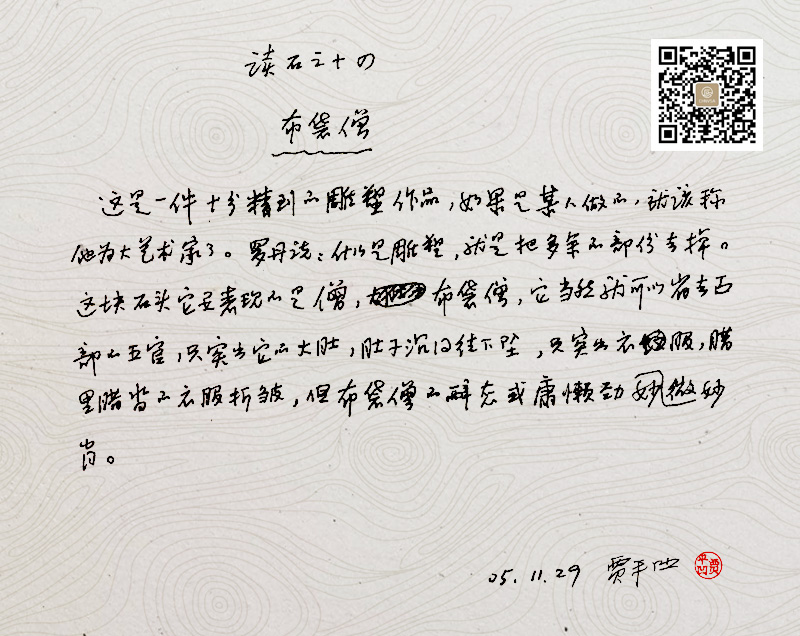 读石之十四
布袋僧
这是一件十分精到的雕塑作品，如果是某人做的，就该称
他为大艺术家了。罗丹说：什么是雕塑，就是把多余的部份去掉。
这块石头它要表现的是僧，布袋僧，它当然就可以省去面
部的五官，只突出它的大肚，肚子沉得往下坠，只突出衣服，腊
里腊沓的衣服折皱，但布袋僧的醉态或慵懒劲微妙
肖。
05.11.29 贾平凹
贾平凹